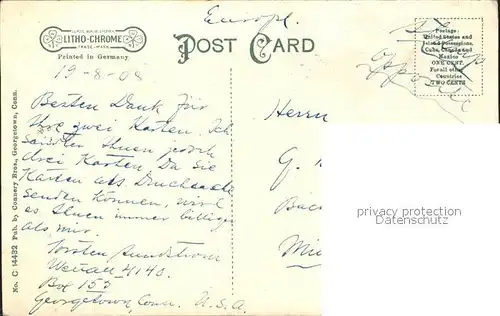 Europe.
LITHO-CHROME
TRADE-MARK
Printed in Germany
POST CARD
Postage:
United States and
Island Possessions,
Cuba, Canada and
Mexico
ONE CENT.
For all other
Countries
TWO CENTS
19-8-08
Besten Dank für
Ihre zwei Karten. Ich
sandten Ihnen jedoch
drei Karten. Da Sie
Karten als Drucksache
senden können, wird
es Ihnen immer billiger
als mir.
Torsten
4140.
Box 153
Georgetown, Conn. U.S.A.
Herrn
G.
Mü
privacy protection
No. C 14432 Pub. by Connery Bros., Georgetown, Conn.